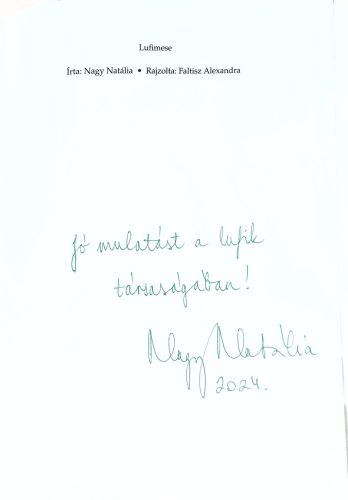 Lufimese
Írta: Nagy Natália • Rajzolta: Faltisz Alexandra
Jó mulatást a lufik
társaságában!
Nagy Natália
2024.